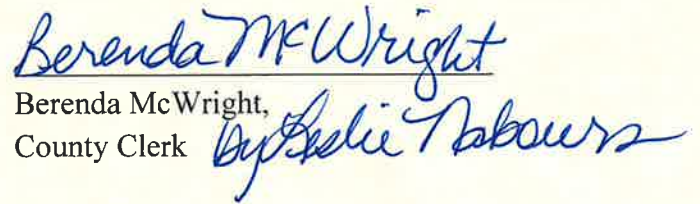 Berenda McWright
Berenda McWright,
County Clerk by Leslie Nabours